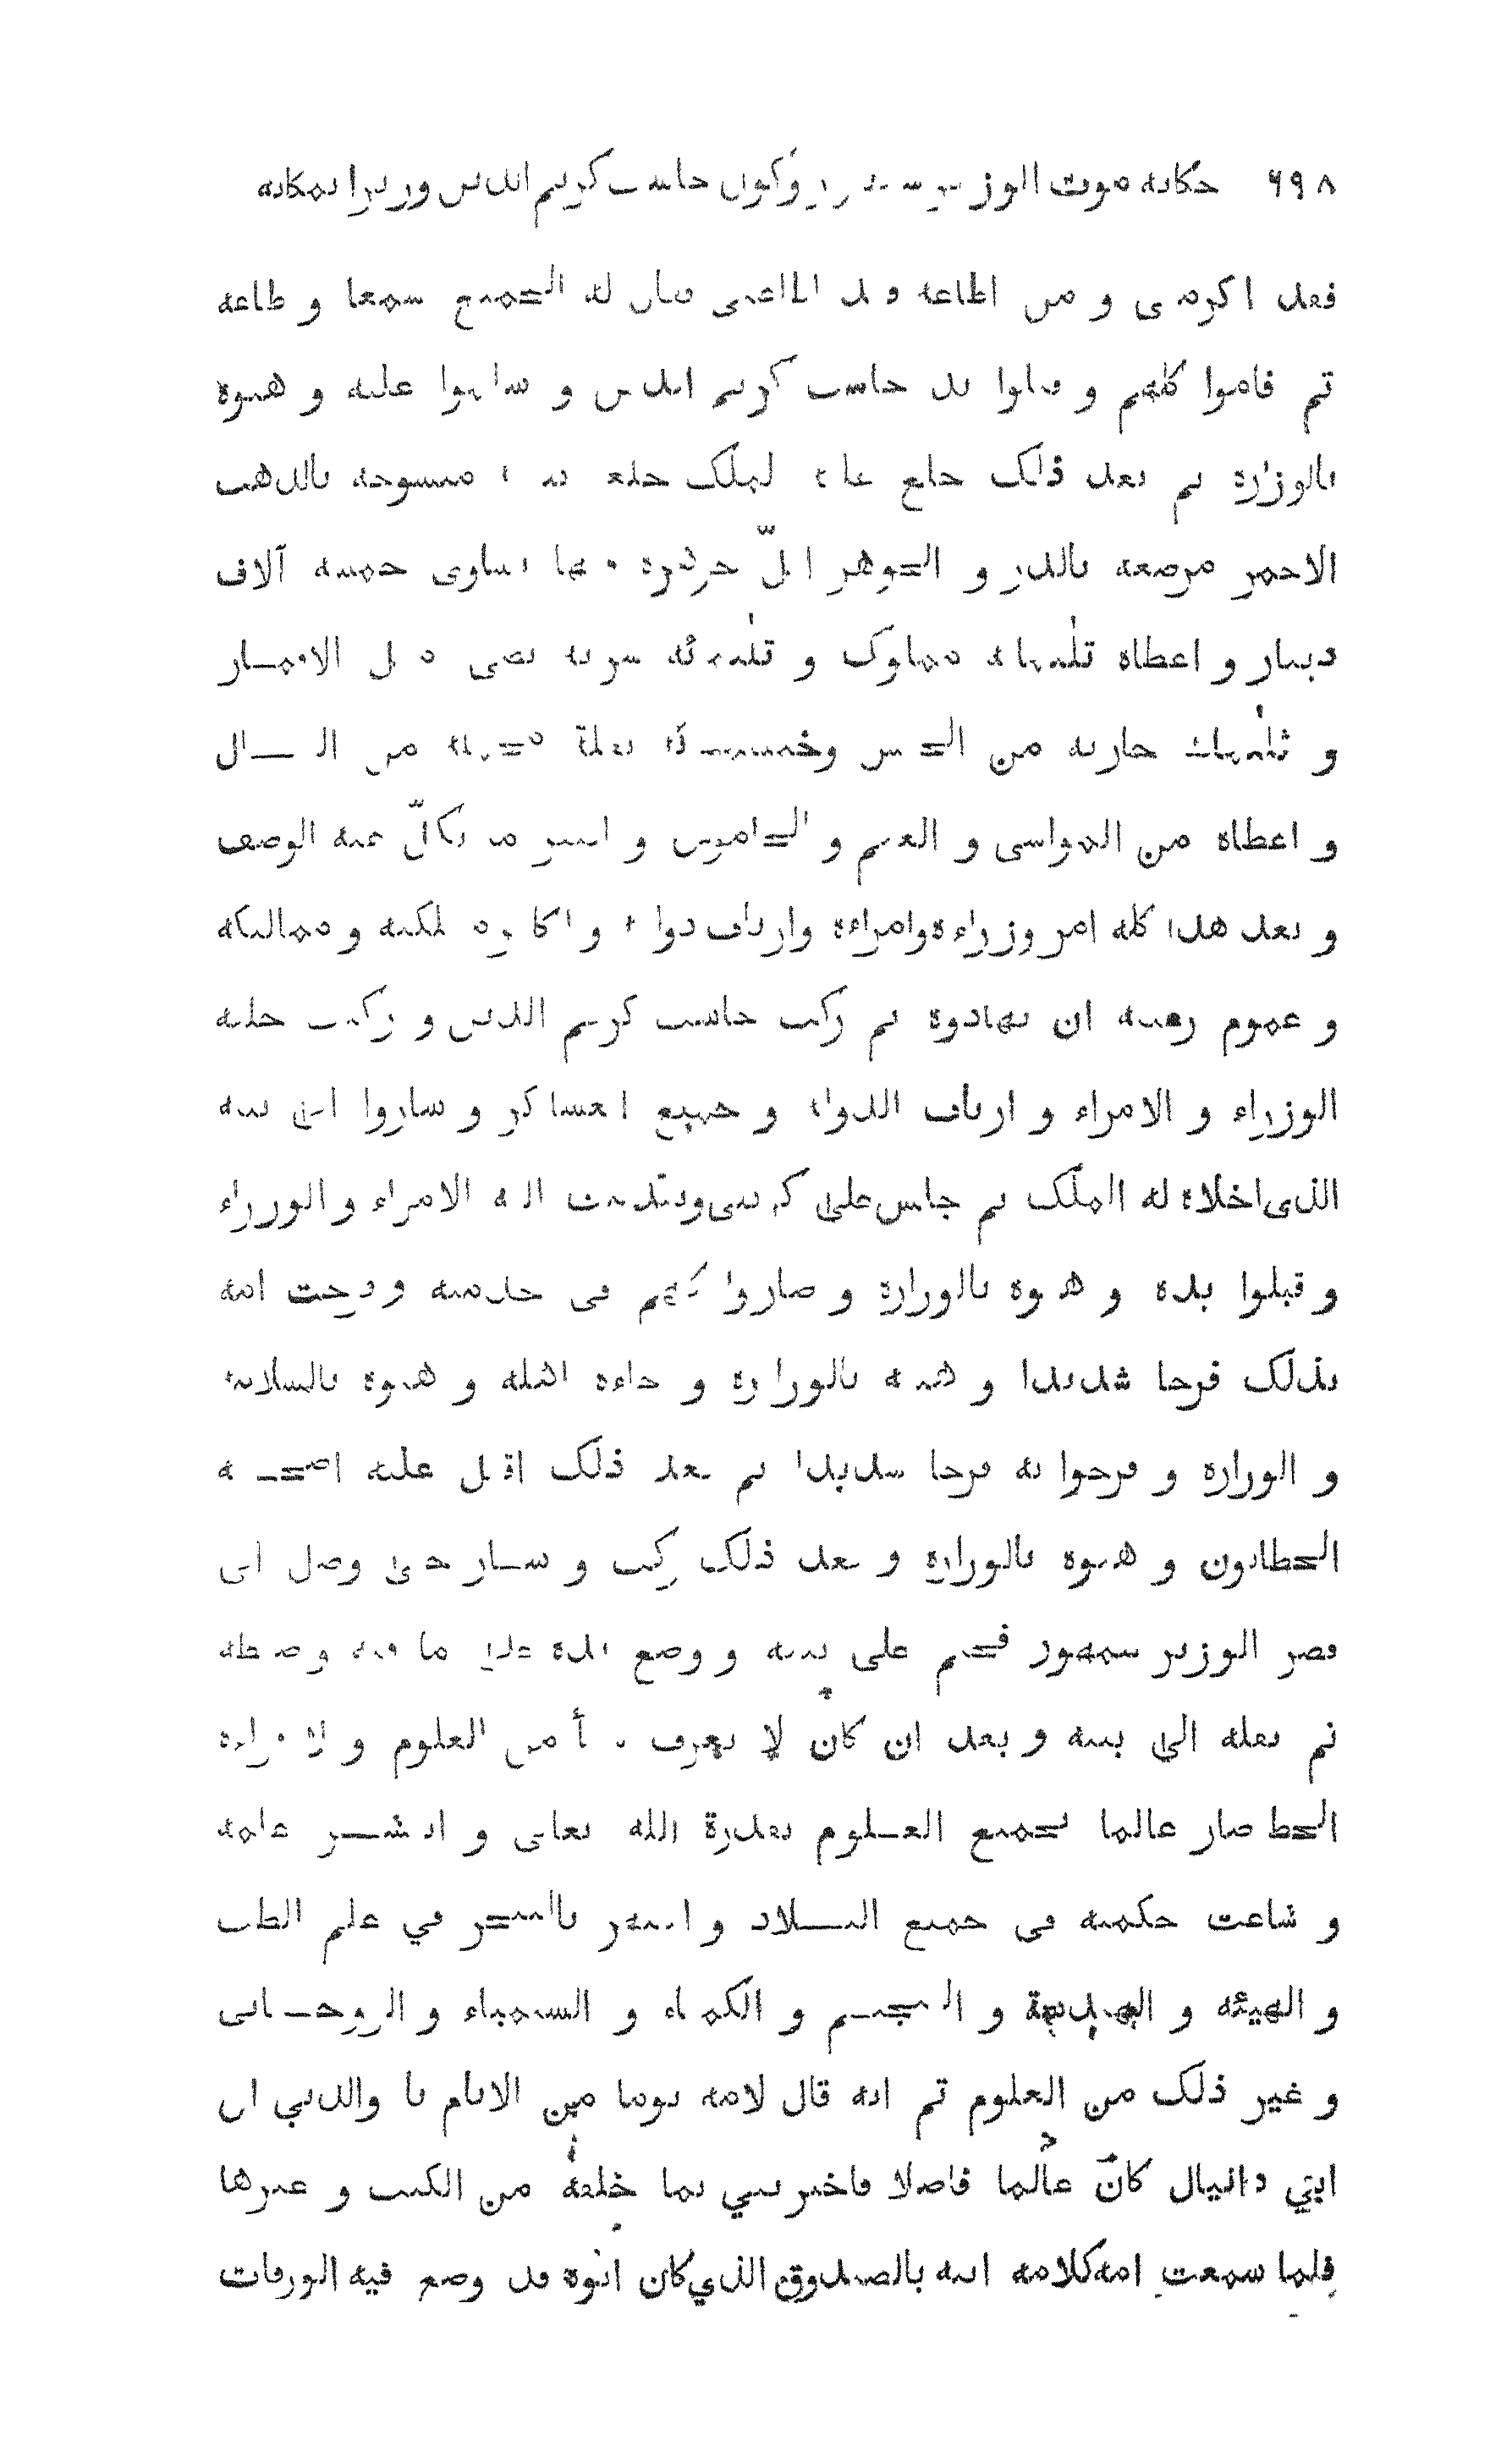 ٦٩٨ حكاية موت الوزير وكون حاسب كريم الدين وزيرا بمكانه
فقد اكرمني و من اطاعه فقد اطاعني فقال له الجميع سمعا و طاعة
ثم قاموا كلهم و قبلوا يد حاسب كريم الدين و سلموا عليه و هنوه
بالوزارة ثم بعد ذلك خلع عليه الملك خلعة منسوجة بالذهب
الاحمر مرصعة بالدر و الجوهر اقلّ جوهرة فيها تساوي خمسة آلاف
دينار و اعطاه ثلثمائة مملوك و ثلثمائة سرية تضي مثل الاقمار
و ثلثمائة جارية من الحبش وخمسمائة بغلة محملة من المال
و اعطاه من المواشي و الغنم و الجاموس و البقر ما يكلّ عنه الوصف
و بعد هذا كله امر وزراءه وامراءه وارباب دولته و اكابر مملكته و مماليكه
و عموم رعيته ان يهادوه ثم ركب حاسب كريم الدين و ركبت خلفه
الوزراء و الامراء و ارباب الدولة و جميع العساكر و ساروا الى بيته
الذي اخلاه له الملك ثم جلس على كرسي وتقدمت اليه الامراء و الوزراء
و قبلوا يده و هنوه بالوزارة و صاروا كلهم في خدمته و فرحت امه
بذلك فرحا شديدا و هنته بالوزارة و جاءه اهله و هنوه بالسلامة
و الوزارة و فرحوا به فرحا شديدا ثم بعد ذلك اقبل عليه اصحابه
الحطابون و هنوه بالوزارة و بعد ذلك ركب و سار حتى وصل الى
قصر الوزير شمهور فختم على بيته و وضع يده على ما فيه و ضبطه
ثم نقله الى بيته و بعد ان كان لا يعرف شيأ من العلوم و لا قراءة
الخط صار عالما بجميع العلوم بقدرة الله تعالى و انتشر علمه
و شاعت حكمته في جميع البلاد و اشتهر بالتبحر في علم الطب
و الهيئة و الهندسة و التنجيم و الكيمياء و السيمياء و الروحاني
و غير ذلك من العلوم ثم انه قال لامه يوما من الايام يا والدتي ان
ابي دانيال كان عالما فاضلا فاخبريني بما خلفه من الكتب و غيرها
فلما سمعت امه كلامه اتته بالصندوق الذي كان ابوه قد وضع فيه الورقات